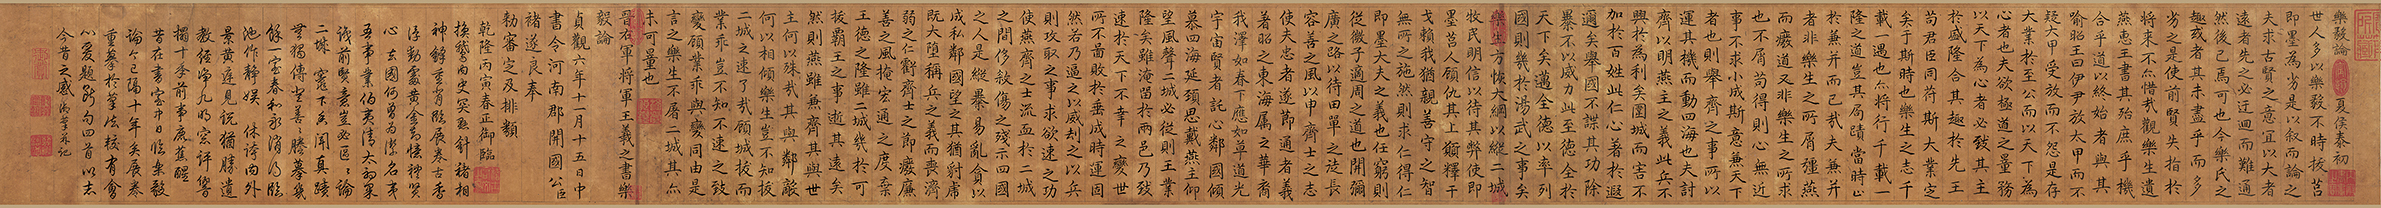 樂毅論 夏侯泰初
世人多以樂毅不時拔莒
即墨為劣是以叙而論之
夫求古賢之意宜以大者
遠者先之必迂迴而難通
然後已焉可也今樂氏之
趣或者其未盡乎而多
劣之是使前賢失指於
將來不亦惜哉觀樂生遺
燕惠王書其殆庶乎機
合乎道以終始者與其
喻昭王曰伊尹放大甲而不
疑大甲受放而不怨是存
大業於至公而以天下為
心者也夫欲極道之量務
以天下為心者必致其主
於盛隆合其趣於先王
苟君臣同符斯大業定
矣于斯時也樂生之志千
載一遇也亦將行千載一
隆之道豈其局蹟當時止
於兼并而已哉夫兼并
者非樂生之所屑彊燕
而廢道又非樂生之所求
也不屑苟得則心無近
事不求小成斯意兼天下
者也則舉齊之事所以
運其機而動四海也夫討
齊以明燕主之義此兵不
興於為利矣圍城而害不
加於百姓此仁心著於遐
邇矣舉國不謀其功除
暴不以威力此至德全於
天下矣邁全德以率列
國則幾於湯武之事矣
樂生方恢大綱以縱二城
牧民明信以待其弊使即
墨莒人顧仇其上願釋干
戈賴我猶親善守之智
無所之施然則求仁得仁
即墨大夫之義也任窮則
從微子適周之道也開彌
廣之路以待田單之徒長
容善之風以申齊士之志
使夫忠者遂節通者義
著昭之東海属之華裔
我澤如春下應如草道光
宇宙賢者託心鄰國傾
慕四海延頸思戴燕主仰
望風聲二城必從則王業
隆矣雖淹留於兩邑乃致
速於天下不幸之變世
所不圖敗於垂成時運固
然若乃逼之以威劫之以兵
則攻取之事求欲速之功
使燕齊之士流血於二城
之間侈殺傷之殘示四國
之人是縱暴易亂貪以
成私鄰國望之其猶豺虎
既大墮稱兵之義而喪濟
弱之仁虧齊士之節廢廉
善之風掩宏通之度棄
王德之隆雖二城幾於可
拔霸王之事逝其遠矣
然則燕雖兼齊其與世
主何以殊哉其與鄰敵
何以相傾樂生豈不知拔
二城之速了哉顧城拔而
業乖豈不知不速之致
變顧業乖與變同由是
言之樂生不屠二城其亦
未可量也
晉右軍將軍王羲之書樂
毅論
貞觀六年十一月十五日中
書令河南郡開國公臣
褚遂良奉
勅審定及排類
乾隆丙寅春正御臨
換鵝內史針褚相
神鋒重省臨展卷古香
浮黃金
心去國何曾為潔名夷
吾事業伯夷清太初
識前賢意豈必區區論
二城 下真蹟
世獨傳摹幾
餘一室春和永消乃臨
池作靜娛 休誇內外
景黃庭見說猶勝遺
教經明窗評響
搨十年前事廣蕉醒
昔在書室中日臨樂毅
論今已隔十年矣展卷
重摹於筆法較有會
心處題絕句四首以志
今昔之感 御筆并記